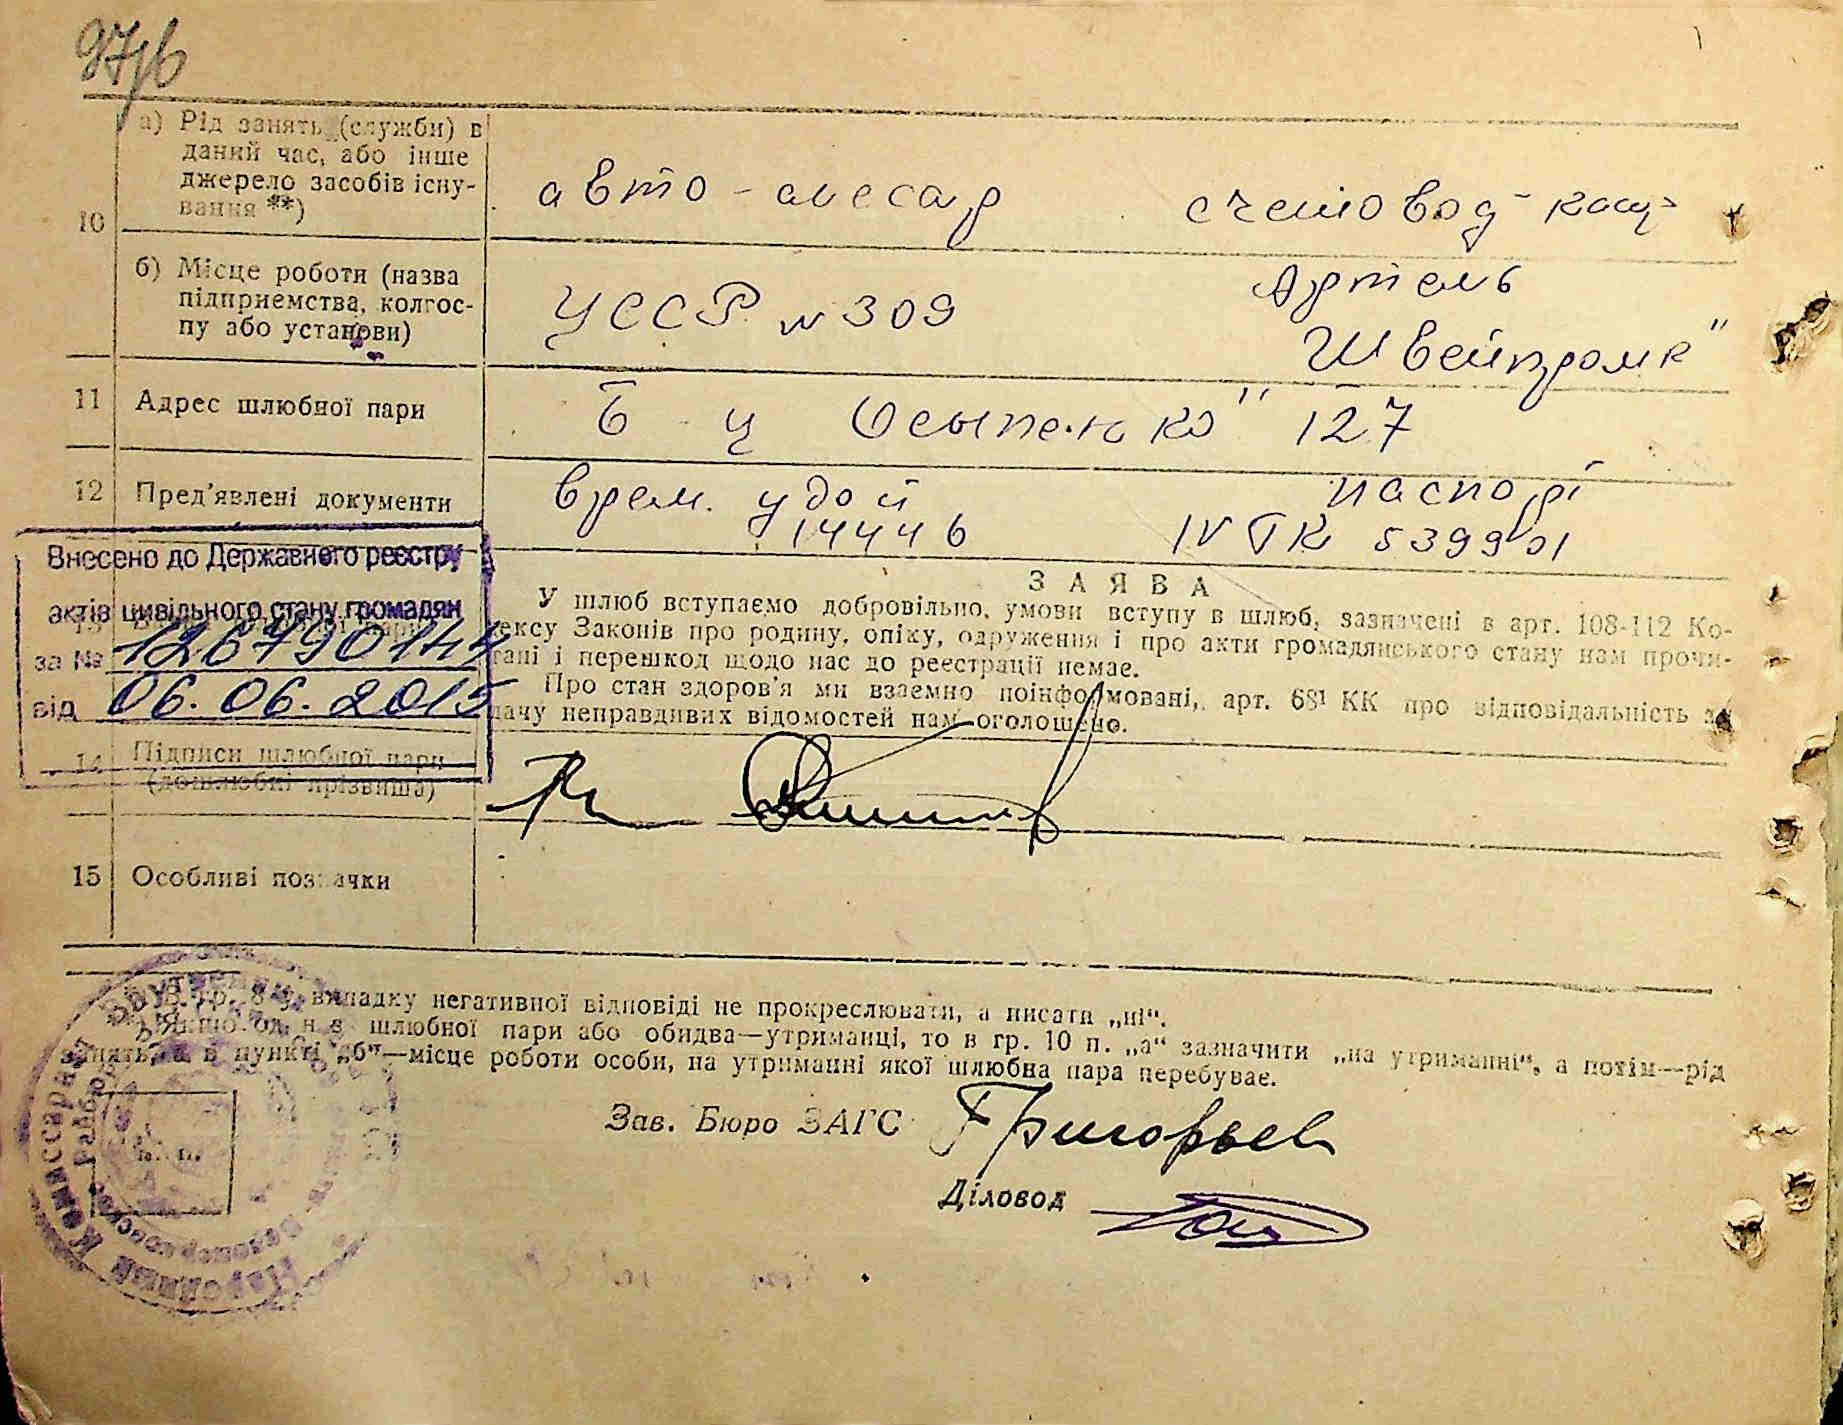 97/в
а) Рід занять (служби) в
даний час, або інше
джерело засобів існу-
вання **)
10
авто-слесар
счетовод-
б) Місце роботи (назва
підприемства, колгос-
пу або установи)
УССР №309
Артель
Швейпром"
11 Адрес шлюбної пари
Осыпенко" 127
12 Пред'явлені документи
врем. удос
14446
паспорт
IV ТК 539901
Внесено до Державного реєстру
актів цивільного стану громадян
за №
від 06.06.2015
ЗАЯВА
У шлюб вступаємо добровільно, умови вступу в шлюб, зазначені в арт. 108-112 Ко-
ексу Законів про родину, опіку, одруження і про акти громадянського стану нам прочи-
тані і перешкод щодо нас до реєстрації немає.
Про стан здоров'я ми взаємно поінформовані, арт. 68¹ КК про відповідальність за
дачу неправдивих відомостей нам оголошено.
14 Підписи шлюбної пари
(дошлюбні прізвища)
15 Особливі позначки
В гр. 8 у випадку негативної відповіді не прокреслювати, а писати „ні“.
Якщо од н з шлюбної пари або обидва—утриманці, то в гр. 10 п. „а“ зазначити „на утриманні“, а потім—рід
занять, а в пункті „б“—місце роботи особи, на утриманні якої шлюбна пара перебуває.
Зав. Бюро ЗАГС Григорьев
Діловод
Народный Комиссариат Внутренних